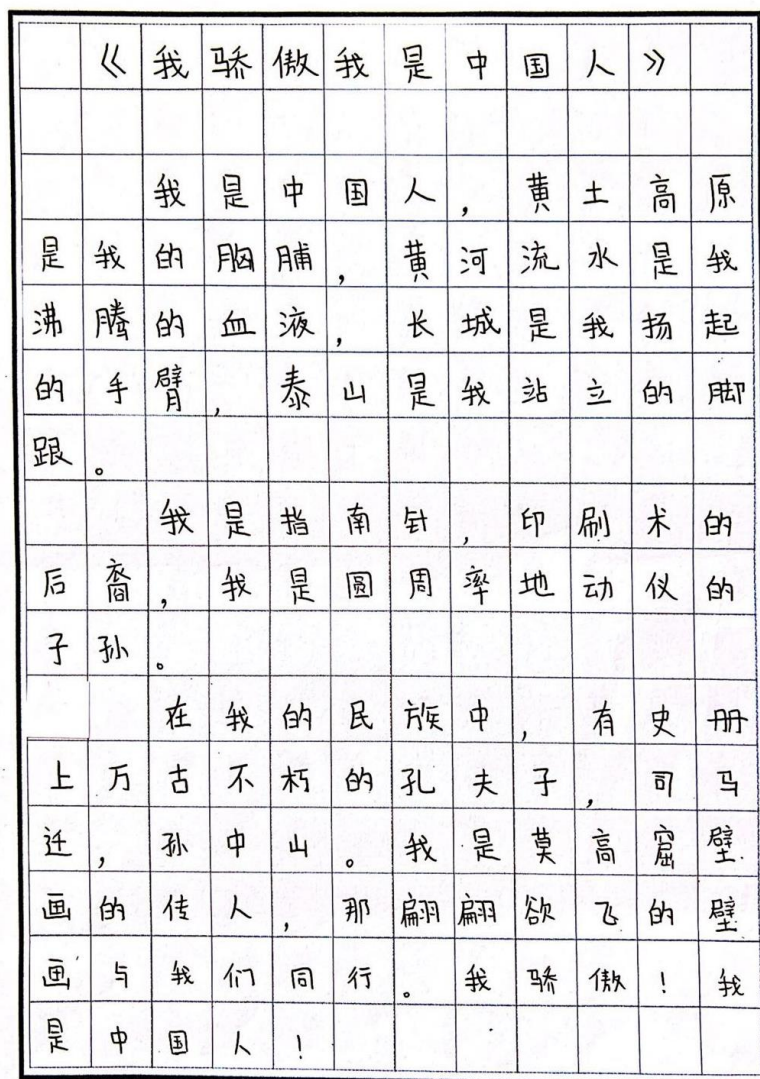 《我骄傲我是中国人》
我是中国人，黄土高原
是我的胸脯，黄河流水是我
沸腾的血液，长城是我扬起
的手臂，泰山是我站立的脚
跟。
我是指南针，印刷术的
后裔，我是圆周率地动仪的
子孙。
在我的民族中，有史册
上万古不朽的孔夫子，司马
迁，孙中山。我是莫高窟壁
画的传人，那翩翩欲飞的壁
画与我们同行。我骄傲！我
是中国人！